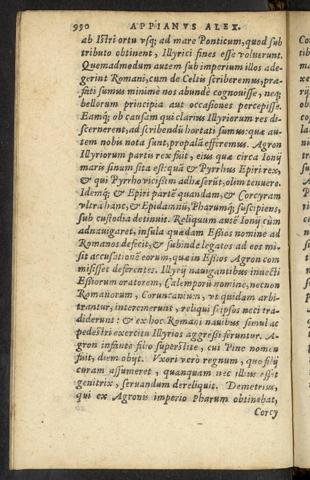 990 APPIANVS ALEX.
ab Istri ortu vsq; ad mare Ponticum, quod sub
tributo obtinent, Illyrici fines esse voluerunt.
Quemadmodum autem sub imperium illos ade-
gerint Romani, cum de Celtis scriberemus, præ-
fati sumus minimè nos abundè cognouisse, neq;
bellorum principia aut occasiones percepisse.
Eamq; ob causam qui clarius Illyriorum res di-
scernerent, ad scribendū hortati sumus: quæ au-
tem nobis nota sunt, propalā efferemus. Agron
Illyriorum partis rex fuit, eius quæ circa Ionij
maris sinum sita est: quā & Pyrrhus Epiri rex,
& qui Pyrrho vicissim adhæserūt, olim tenuere.
Idemq; & Epiri partē quandam, & Corcyram
vltra hanc, & Epidamnū, Pharumq; suscipiens,
sub custodia detinuit. Reliquum autē Ionij cùm
adnauigaret, insula quædam Essios nomine ad
Romanos defecit, & subinde legatos ad eos mi-
sit accusationē eorum, quæ in Essios Agron com
misisset deferentes. Illyrij nauigantibus inuecti
Essiorum oratorem, Calemporū nomine, necnon
Romanorum, Coruncanium, vt quidam arbi-
trantur, interemerunt, reliqui seipsos neci tra-
diderunt: & ex hoc Romani nauibus simul ac
pedestri exercitu Illyrios aggressi feruntur. A-
gron infante filio superstite, cui Pine nomen
fuit, diem obijt. Vxori verò regnum, quo filij
curam assumeret, quanquam nec illius esset
genitrix, seruandum dereliquit. Demetrius,
qui ex Agronis imperio Pharum obtinebat,
Corcy